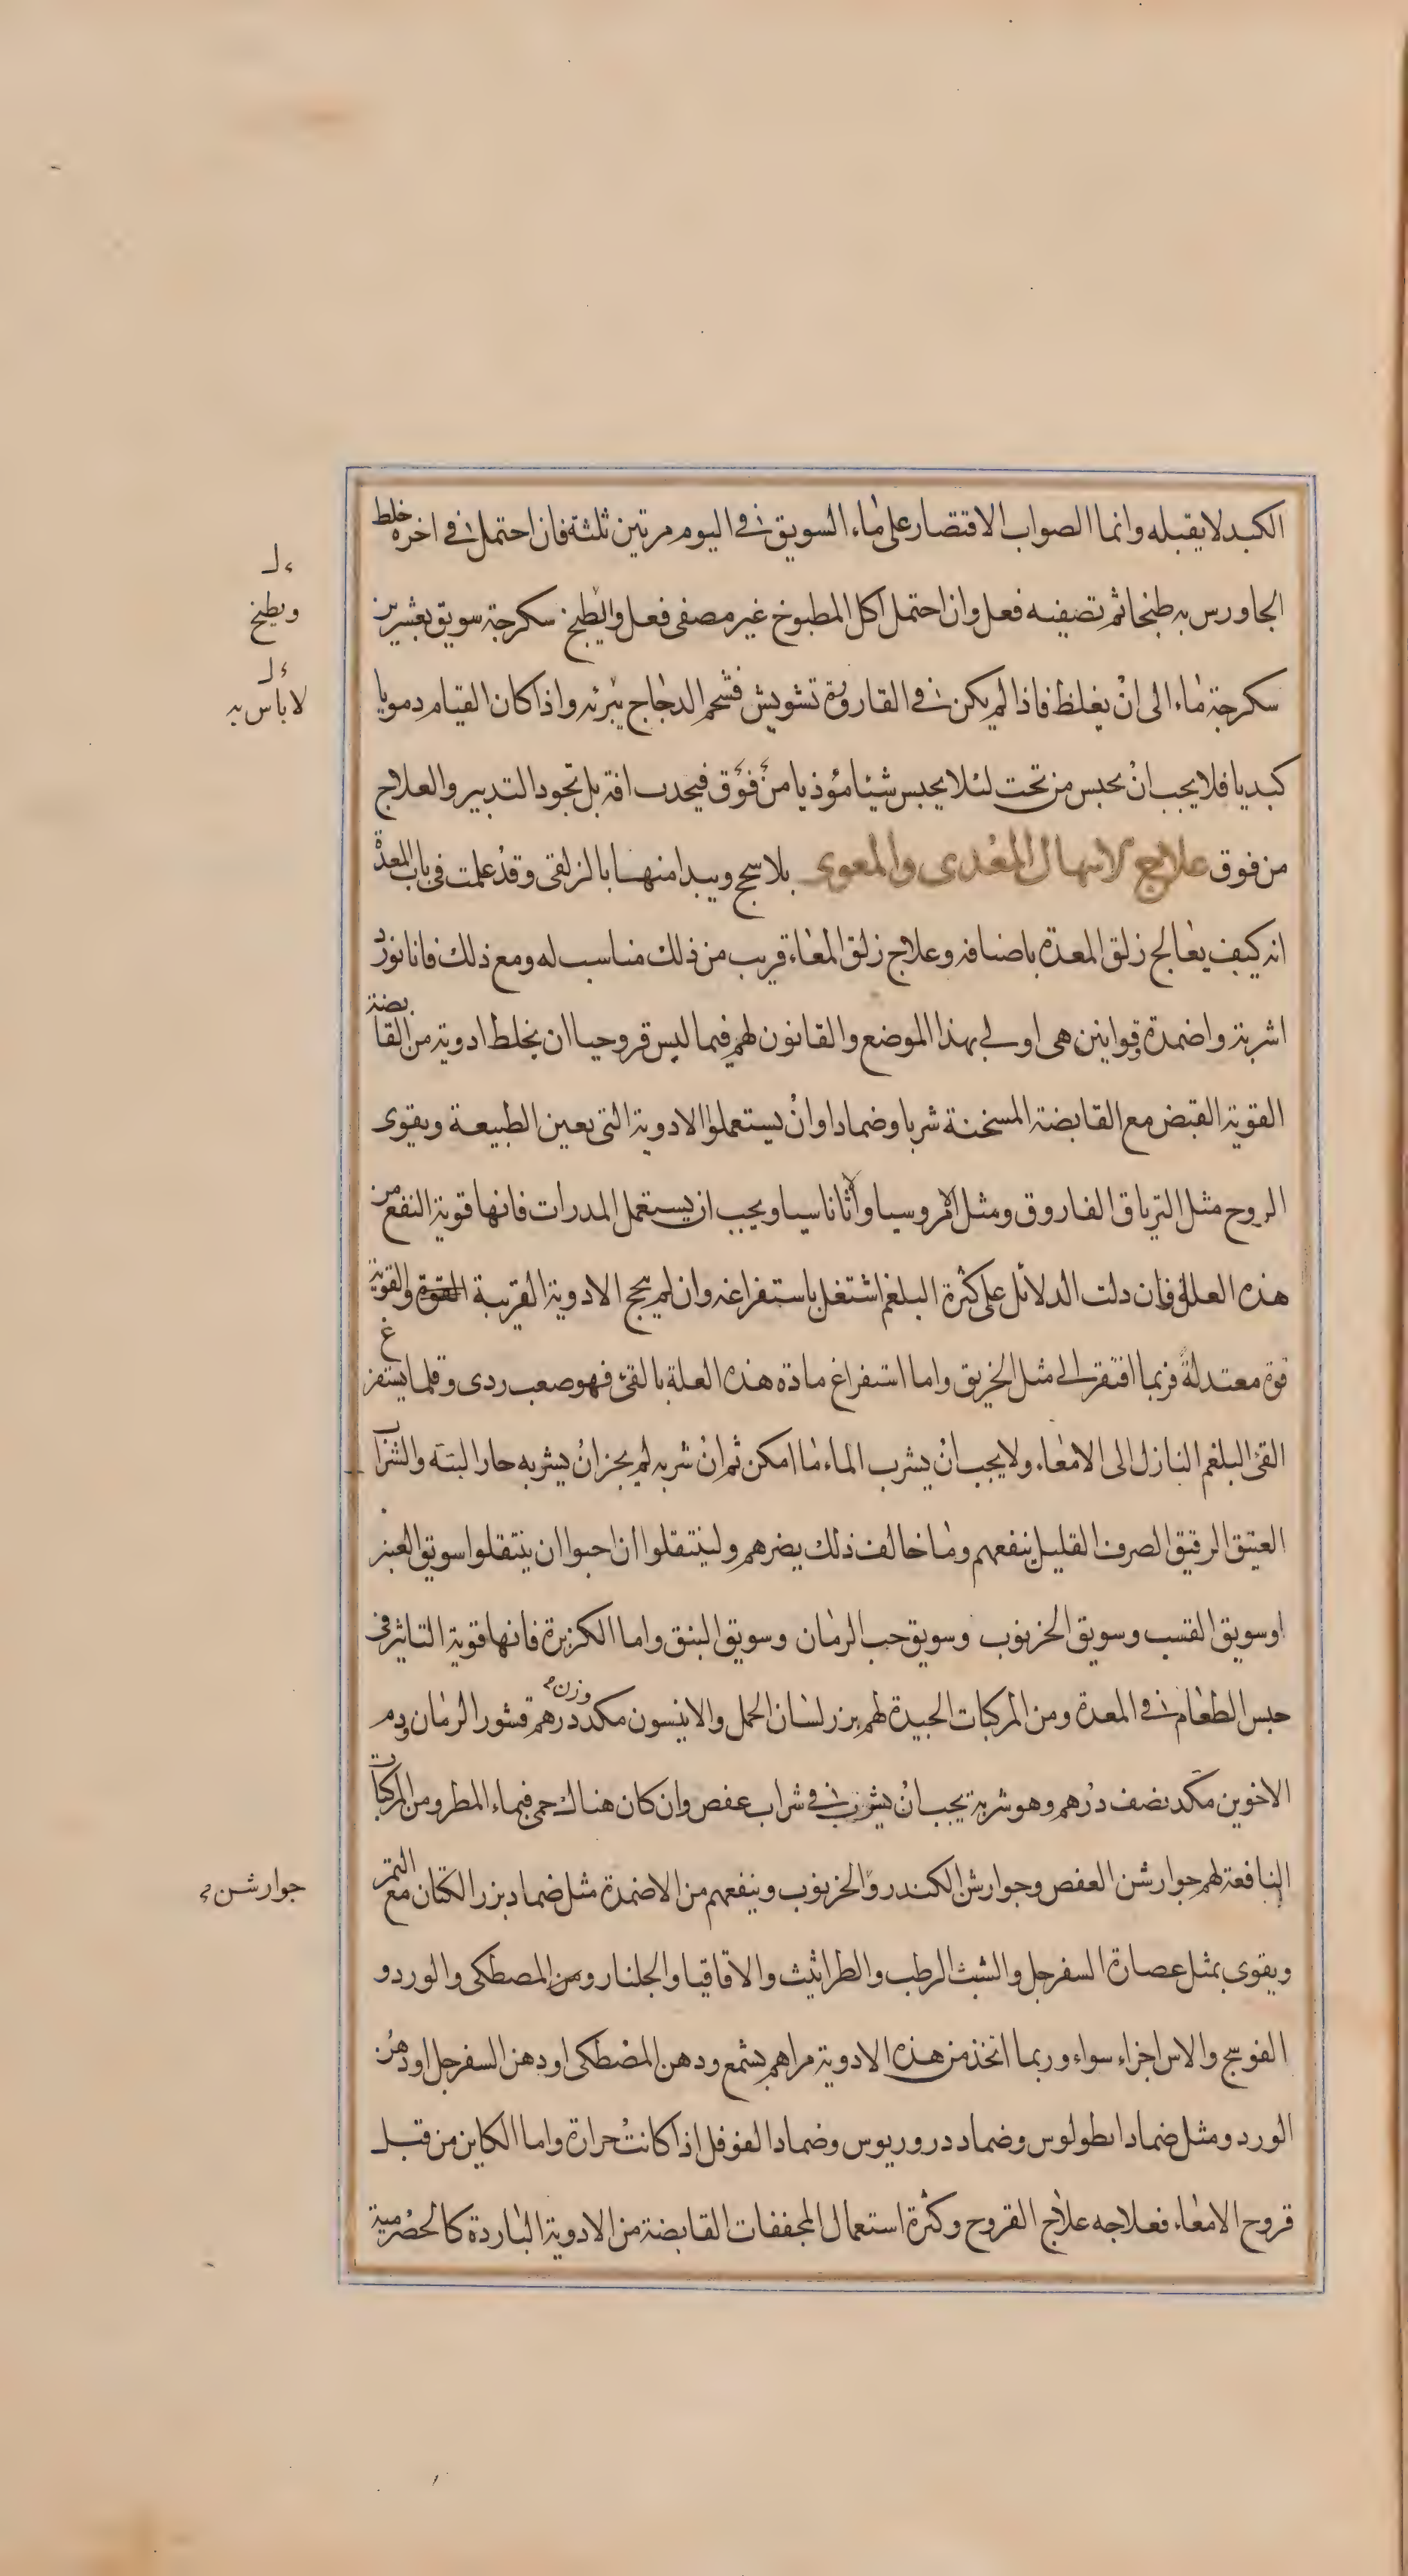 الكبد لا يقبله وانما الصواب الاقتصار على ماء السويق في اليوم مرتين ثلثة فان احتمل في اخره خلط
الجاورس به طبخا ثم تصفيه فعل وان احتمل اكل المطبوخ غير مصفى فعل وايطبخ سكرجة سويق بعشرين
سكرجة ماء الى ان يغلظ فاذا لم يكن في القارورة تشويش فشحم الدجاج يبرئه واذا كان القيام دمويا
كبديا فلا يجب ان يحبس من تحت لئلا يحبس شيئا مؤذيا من فوق فيحدث افة بل تجود التدبير والعلاج
من فوق علاج الاسهال المعدى والمعوى بلا سحج ويبدا منها بالزلقى وقد علمت في باب المعدة
انه كيف يعالج زلق المعدة باصنافه وعلاج زلق المعاء قريب من ذلك مناسب له ومع ذلك فانا نورد
اشربة واضمدة وقوانين هى اولى بهذا الموضع والقانون لهم فيما ليس قروحيا ان يخلط ادوية من القابضة
القوية القبض مع القابضة المسخنة شربا وضمادا وان يستعملوا الادوية التى تعين الطبيعة ويقوى
الروح مثل الترياق الفاروق ومثل الامروسيا واثاناسيا ويجب ان يستعمل المدرات فانها قوية النفع من
هذه العلل فان دلت الدلائل على كثرة البلغم اشتغل باستفراغه وان لم ينجح الادوية القريبة القوة والقوية
قوة معتدلة فربما افتقر الى مثل الخربق واما استفراغ مادة هذه العلة بالقئ فهو صعب ردى وقلما يستفرغ
القئ البلغم النازل الى الامعاء ولا يجب ان يشرب الماء ما امكن ثم ان شربه لم يجز ان يشربه حارا البتة والشراب
العتيق الرقيق الصرف القليل ينفعهم وما خالف ذلك يضرهم ولينتقلوا ان احبوا ان ينتقلوا سويق الغبيرا
او سويق القسب وسويق الخرنوب وسويق حب الرمان وسويق النبق واما الكزبرة فانها قوية التاثير في
حبس الطعام في المعدة ومن المركبات الجيدة لهم بزر لسان الحمل والانيسون مكد وزن درهم قشور الرمان ودم
الاخوين مكد نصف درهم وهو شربة يجب ان يشرب في شراب عفص وان كان هناك حمى فبماء المطر ومن المركبات
النافعة لهم جوارشن العفص وجوارش الكندر والخرنوب وينفعهم من الاضمدة مثل ضماد بزر الكتان مع التمر
ويقوى بمثل عصارة السفرجل والشبث الرطب والطراثيث والاقاقيا والجلنار ومن المصطكى والورد و
العوسج والاس اجزاء سواء وربما اتخذ من هذه الادوية مراهم بشمع ودهن المصطكى او دهن السفرجل او دهن
الورد ومثل ضماد ضماد دروريوس وضماد الفوفل اذا كانت حرارة واما الكاين من قبل
قروح الامعاء فعلاجه علاج القروح وكثرة استعمال المجففات القابضة من الادوية الباردة كالحصرمية
ويطبخ
لا باس به
جوارشن